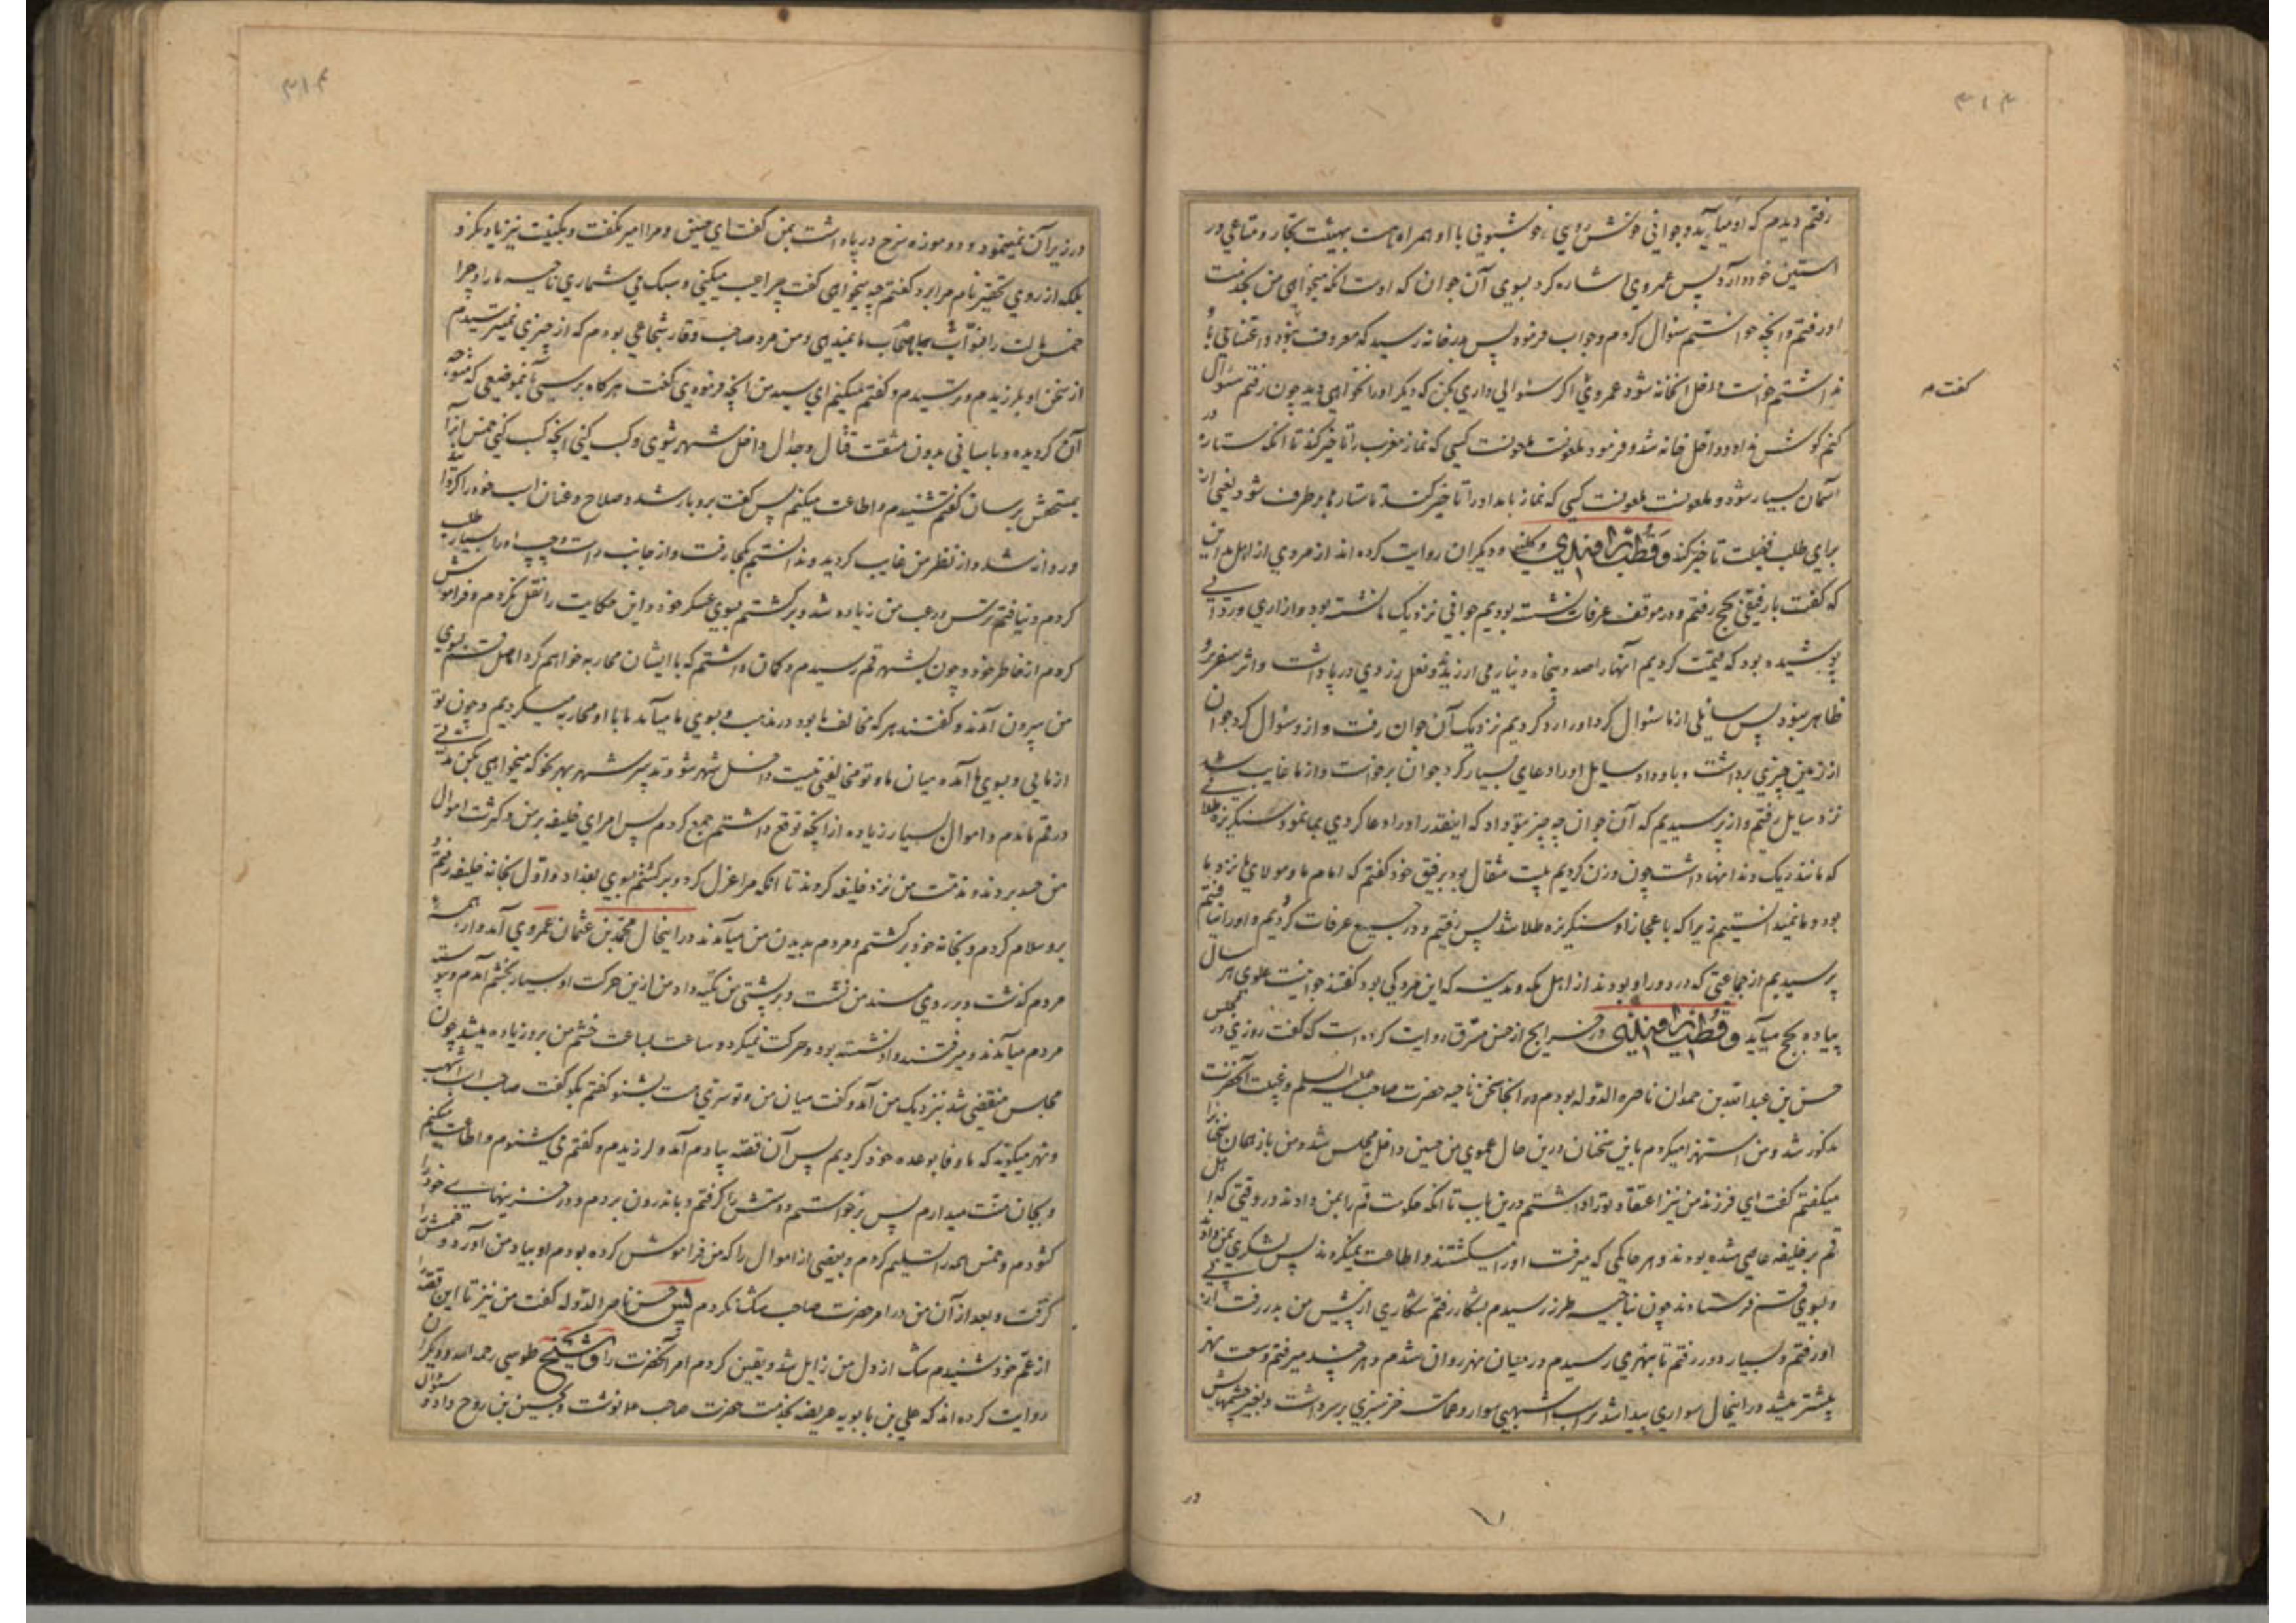 رفتم دیدم که او میآید و جوانی خوش روی و خوشبوئی با او همراه است بهیئت تجار و متاعی در
آستین خود دارد پس عمروی اشاره کرد بسوی آن جوان که اوست آنکه میخواهی من بخدمت
او رفتم و آنچه خواستم سئوال کردم و جواب فرمود پس بدرخانه رسید که معروف نبود و اعتنائی بآن
نداشتم خواست داخل آنخانه شود عمروی اگر سئوالی داری بکن که دیگر او را نخواهی دید چون رفتم سئوال
گفت
کنم گوش نداد و داخل خانه شد و فرمود ملعونست ملعونست کسی که نماز مغرب را تاخیر کند تا آنکه ستاره در
آسمان بسیار شود و ملعونست ملعونست کسی که نماز بامداد را تاخیر کند تا ستاره‌ها برطرف شود یعنی از
برای طلب فضیلت تاخیر کند و قطب راوندی و کلینی و دیگران روایت کرده اند از مردی از اهل مداین
که گفت با رفیقی بحج رفتم و در موقف عرفات نشسته بودیم جوانی نزدیک ما نشسته بود و ازاری و ردائی
پوشیده بود که قیمت کردیم آنها را صد و پنجاه دینار می ارزید و نعل زردی در پا داشت و اثر سفر برو
ظاهر نبود پس سائلی از ما سئوال کرد او را رد کردیم نزدیک آن جوان رفت و ازو سئوال کرد جوان
از زمین چیزی برداشت و باو داد سایل او را دعای بسیار کرد جوان برخواست و از ما غایب شد
نزد سایل رفتیم و ازو پرسیدیم که آن جوان چه چیز بتو داد که اینقدر او را دعا کردی بما نمود سنگریزه طلائی
که مانند ریک دندانها داشت چون وزن کردیم بیست مثقال بود برفیق خود گفتم که امام ما و مولای ما نزد ما
بود و ما نمیدانستیم زیرا که باعجاز او سنگریزه طلا شد پس رفتیم و در جمیع عرفات گردیدیم و او را نیافتیم
پرسیدیم از جماعتی که در دور او بودند از اهل مکه و مدینه که این مرد کی بود گفتند جوانیست علوی هر سال
پیاده بحج میآید و قطب راوندی در خرایج از حسن مسترق روایت کرده است که گفت روزی در مجلس
حسن بن عبدالله بن حمدان ناصر الدوله بودم در آنجا سخن ناحیه حضرت صاحب علیه السلام و غیبت آنحضرت
مذکور شد و من استهزا میکردم باین سخنان درین حال عموی من حسین داخل مجلس شد و من باز همان سخنان را
میگفتم گفت ای فرزند من نیز اعتقاد تو را داشتم درین باب تا آنکه حکومت قم را بمن دادند در وقتی که اهل
قم بر خلیفه عاصی شده بودند و هر حاکمی که میرفت او را میکشتند و اطاعت نمیکردند پس لشکری بمن دادند
و بسوی قم فرستادند چون بناحیه طرز رسیدم بشکار رفتم شکاری از پیش من بدر رفت از پی
او رفتم و بسیار دور رفتم تا بنهری رسیدم در میان نهر روان شدم و هر چند میرفتم وسعت نهر
بیشتر میشد در اینحال سواری پیدا شد بر اسب اشهبی سوار و عمامه خز سبزی بر سر داشت و بغیر چشمهاش
در
در زیر آن نمینمود و دو موزه سرخ در پا داشت بمن گفت ای حسین و مرا امیر نگفت و بکنیت نیز یاد نکرد
بلکه از روی تحقیر نام مرا برد گفتم چه میخواهی گفت چرا عیب میکنی و سبک می شماری ناحیه ما را و چرا
خمس مالت را بنواب ما و اصحاب ما نمیدهی و من مرد صاحب وقار شجاعی بودم که از چیزی نمیترسیدم
از سخن او بلرزیدم و ترسیدم و گفتم میکنم ای سید من آنچه فرمودی گفت هرگاه برسی بآنموضعی که متوجه
آن گردیده و بآسانی بدون مشقت قتال و جدال داخل شهر شوی و کسب کنی آنچه کسب کنی خمس آنرا
بمستحقش برسان گفتم شنیدم و اطاعت میکنم پس گفت برو با رشد و صلاح و عنان اسب خود را گردانید
و روانه شد و از نظر من غایب گردید و ندانستم بکجا رفت و از جانب راست و چپ او را بسیار طلب
کردم و نیافتم ترس و رعب من زیاده شد و برگشتم بسوی عسکر خود و این حکایت را نقل نکردم و فراموش
کردم از خاطر خود و چون بشهر قم رسیدم و گمان داشتم که با ایشان محاربه خواهم کرد اهل قم بسوی
من بیرون آمدند و گفتند هر که مخالف ما بود در مذهب و بسوی ما میآمد ما با او محاربه میکردیم و چون تو
از مائی و بسوی ما آمده میان ما و تو مخالفتی نیست داخل شهر شو و تدبیر شهر بهر نحو که میخواهی بکن مدتی
در قم ماندم و اموال بسیار زیاده از آنچه توقع داشتم جمع کردم پس امرای خلیفه بر من و کثرت اموال
من حسد بردند و مذمت من نزد خلیفه کردند تا آنکه مرا عزل کرد و برگشتم بسوی بغداد و اول بخانه خلیفه رفتم و
برو سلام کردم و بخانه خود برگشتم و مردم بدیدن من میآمدند در اینحال محمد بن عثمان عمروی آمد و از همه
مردم گذشت و بر روی مسند من نشست و بر پشتی من تکیه داد من ازین حرکت او بسیار بخشم آمدم و پیوسته
مردم میآمدند و میرفتند و او نشسته بود و حرکت نمیکرد و ساعت بساعت خشم من برو زیاده میشد چون
مجلس منقضی شد بنزدیک من آمد و گفت میان من و تو سری هست بشنو گفتم بگو گفت صاحب اسب اشهب
و نهر میگوید که ما وفا بوعده خود کردیم پس آن قصه بیادم آمد و لرزیدم و گفتم می شنوم و اطاعت میکنم
و بجان منت میدارم پس برخواستم و دستش را گرفتم و باندرون بردم و در خزینهای خود را
گشودم و خمس همه را تسلیم کردم و بعضی از اموال را که من فراموش کرده بودم او بیاد من آورد و خمسش را
گرفت و بعد از آن من در امر حضرت صاحب شک نکردم پس حسن ناصر الدوله گفت من نیز تا این قصه را
از عم خود شنیدم شک از دل من زایل شد و یقین کردم امر آنحضرت را و شیخ طوسی رحمه الله و دیگران
روایت کرده اند که علی بن بابویه عریضه بخدمت حضرت صاحب نوشت و بحسین بن روح داد و سئوال